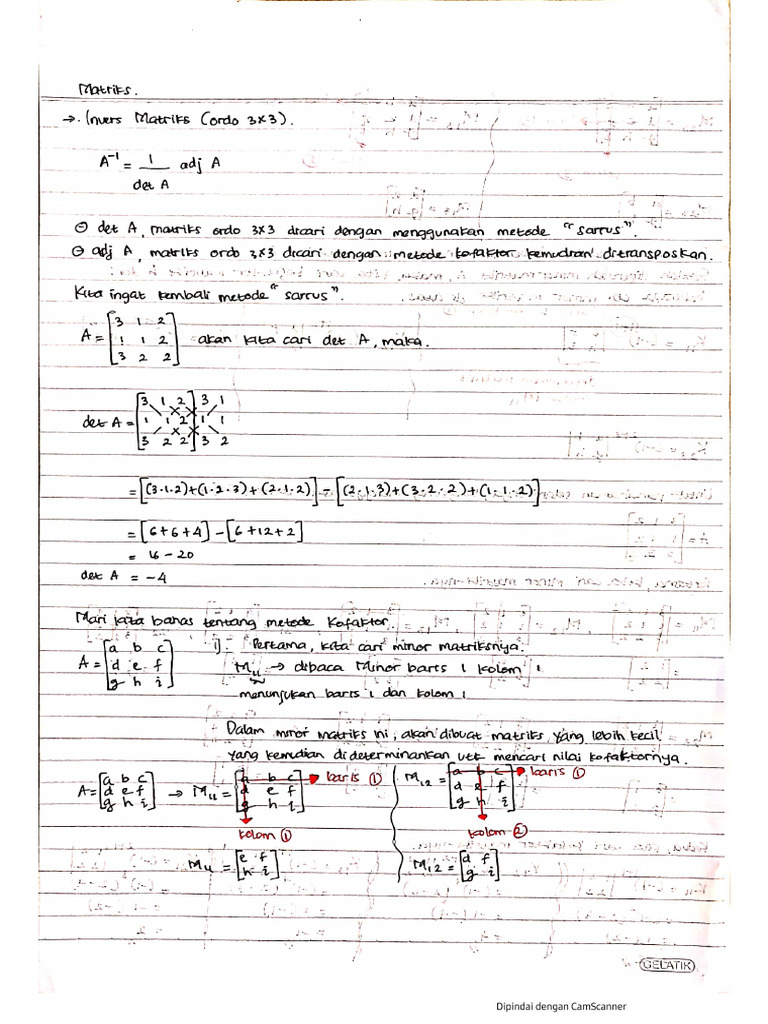 Matriks.
→. Invers Matriks (ordo 3x3).
A⁻¹ = 1/det A adj A
⊖ det A, matriks ordo 3x3 dicari dengan menggunakan metode "sarrus".
⊖ adj A, matriks ordo 3x3 dicari dengan metode kofaktor kemudian ditransposkan.
Kita ingat kembali metode "sarrus".
A = [3 1 2
1 1 2
3 2 2] akan kita cari det A, maka.
det A = [3 1 2] 3 1
[1 1 2] 1 1
[3 2 2] 3 2
= [(3·1·2)+(1·2·3)+(2·1·2)] - [(2·1·3)+(3·2·2)+(1·1·2)]
= [6+6+4] - [6+12+2]
= 16 - 20
det A = -4
Mari kita bahas tentang metode Kofaktor.
A = [a b c
d e f
g h i]
1) Pertama, kita cari minor matriksnya.
M₁₁ → dibaca Minor baris 1 kolom 1
menunjukan baris 1 dan kolom 1
Dalam minor matriks ini, akan dibuat matriks yang lebih kecil
yang kemudian dideterminankan utk mencari nilai kofaktornya.
A = [a b c
d e f
g h i] → M₁₁ = [a b c
d e f
g h i] baris ①
kolom ①
M₁₁ = [e f
h i]
M₁₂ = [a b c
d e f
g h i] baris ①
kolom ②
M₁₂ = [d f
g i]
GELATIK
Dipindai dengan CamScanner